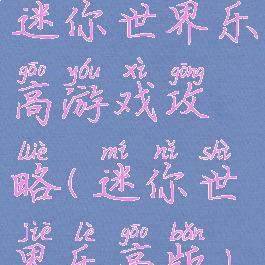 迷你世界乐
gāo yóu xì gōng
高游戏攻
lüè mí nǐ shì
略(迷你世
jiè lè gāo bǎn
界乐高版)